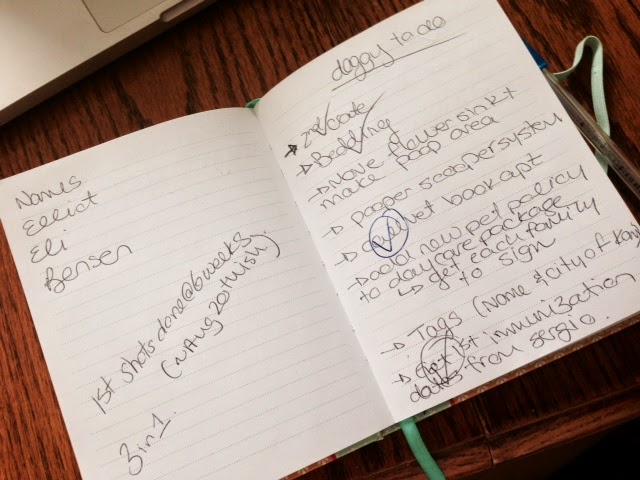 Names
Elliot
Eli
Bensen
1st shots done @ 6 weeks
(~Aug 20th ish)
3 in 1.
doggy to do
→ 2nd Gate
→ Bedding
→ Move flowers in k +
make poop area
→ pooper scooper system
→ vet book apt
→ add new pet policy
to daycare package
↳ get each family
to sign
→ Tags (Name & city of
→ 1st immunization
dates from sergio.